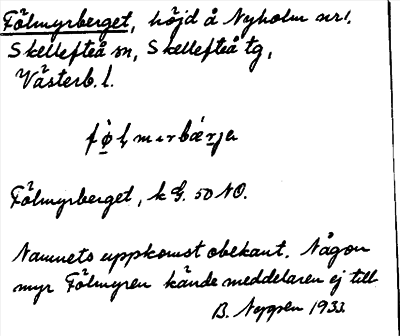 Fölmyrberget, höjd å Nyholm nr 1.
Skellefteå sn, Skellefteå tg,
Västerb. l.
Fölmyrberget, k G. 50 NO.
Namnets uppkomst obekant. Någon
myr Fölmyren kände meddelaren ej till
B. 1933.